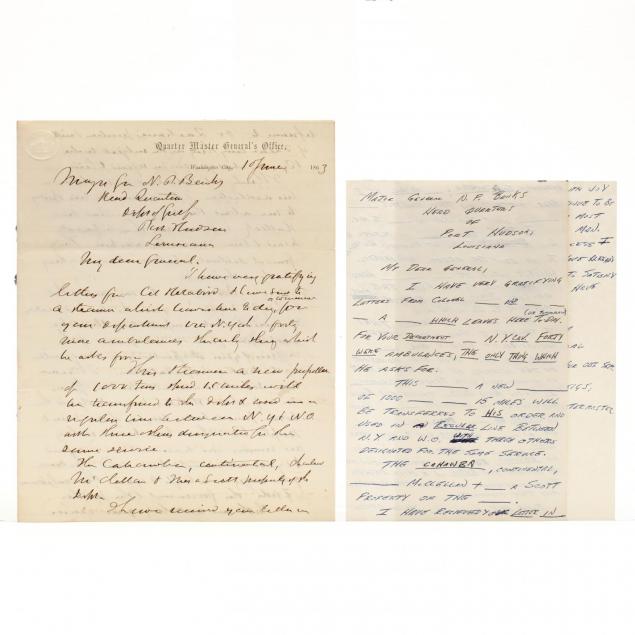 Quarter Master General's Office,
Washington City, 1 June 1863
Major Gen N. P. Banks
Head Quarters
Port Hudson
Louisiana
My dear General.
I have very gratifying
letters from Col Holabird
a steamer which leaves here to day for
your Department via N. York forty
more ambulances the only thing which
he asks for.
This steamer a new propeller
of 1000 Tons speed 15 miles will
be transferred to the Depot & used in a
regular line between N. Y & N. O.
with three others designated for the
same service.
The Cahawba, continental,
McClellan & Thos A Scott property of the
Dept
I have received your letter in
MAJOR GENERAL N. P. BANKS
HEAD QUARTERS
OF
PORT HUDSON,
LOUISIANA
MY DEAR GENERAL,
I HAVE VERY GRATIFYING
LETTERS FROM COLONEL ___
— A ___ WHICH LEAVES HERE TODAY.
FOR YOUR DEPARTMENT — N.Y. FORTY
WERE AMBULANCES, THE ONLY THING WHICH
HE ASKS FOR.
THIS ___ A NEW ___
OF 1000 ___ 15 MILES WILL
BE TRANSFERRED TO HIS ORDER AND
USED IN A REGULAR LINE BETWEEN
N.Y AND W.O. WITH THREE OTHERS
DEDICATED FOR THE SAME SERVICE.
THE CONAWER, CONTINENTAL,
___ McCLELLAN + ___ A SCOTT
PROPERTY OR THE ___.
I HAVE RECIEVED YOUR LETTER IN